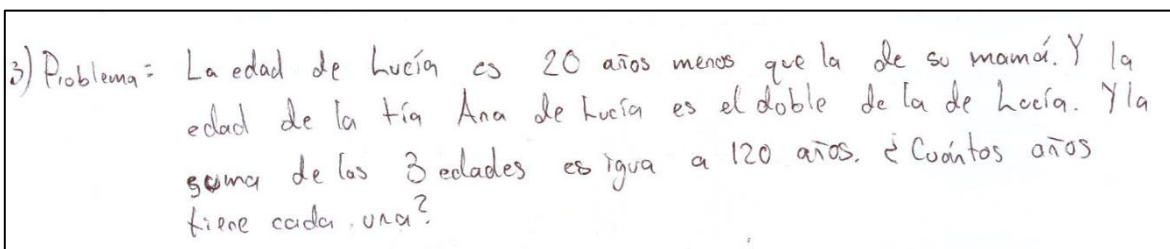 3) Problema: La edad de Lucía es 20 años menos que la de su mamá. Y la
edad de la tía Ana de Lucía es el doble de la de Lucía. Y la
suma de las 3 edades es igua a 120 años. ¿Cuántos años
tiene cada una?